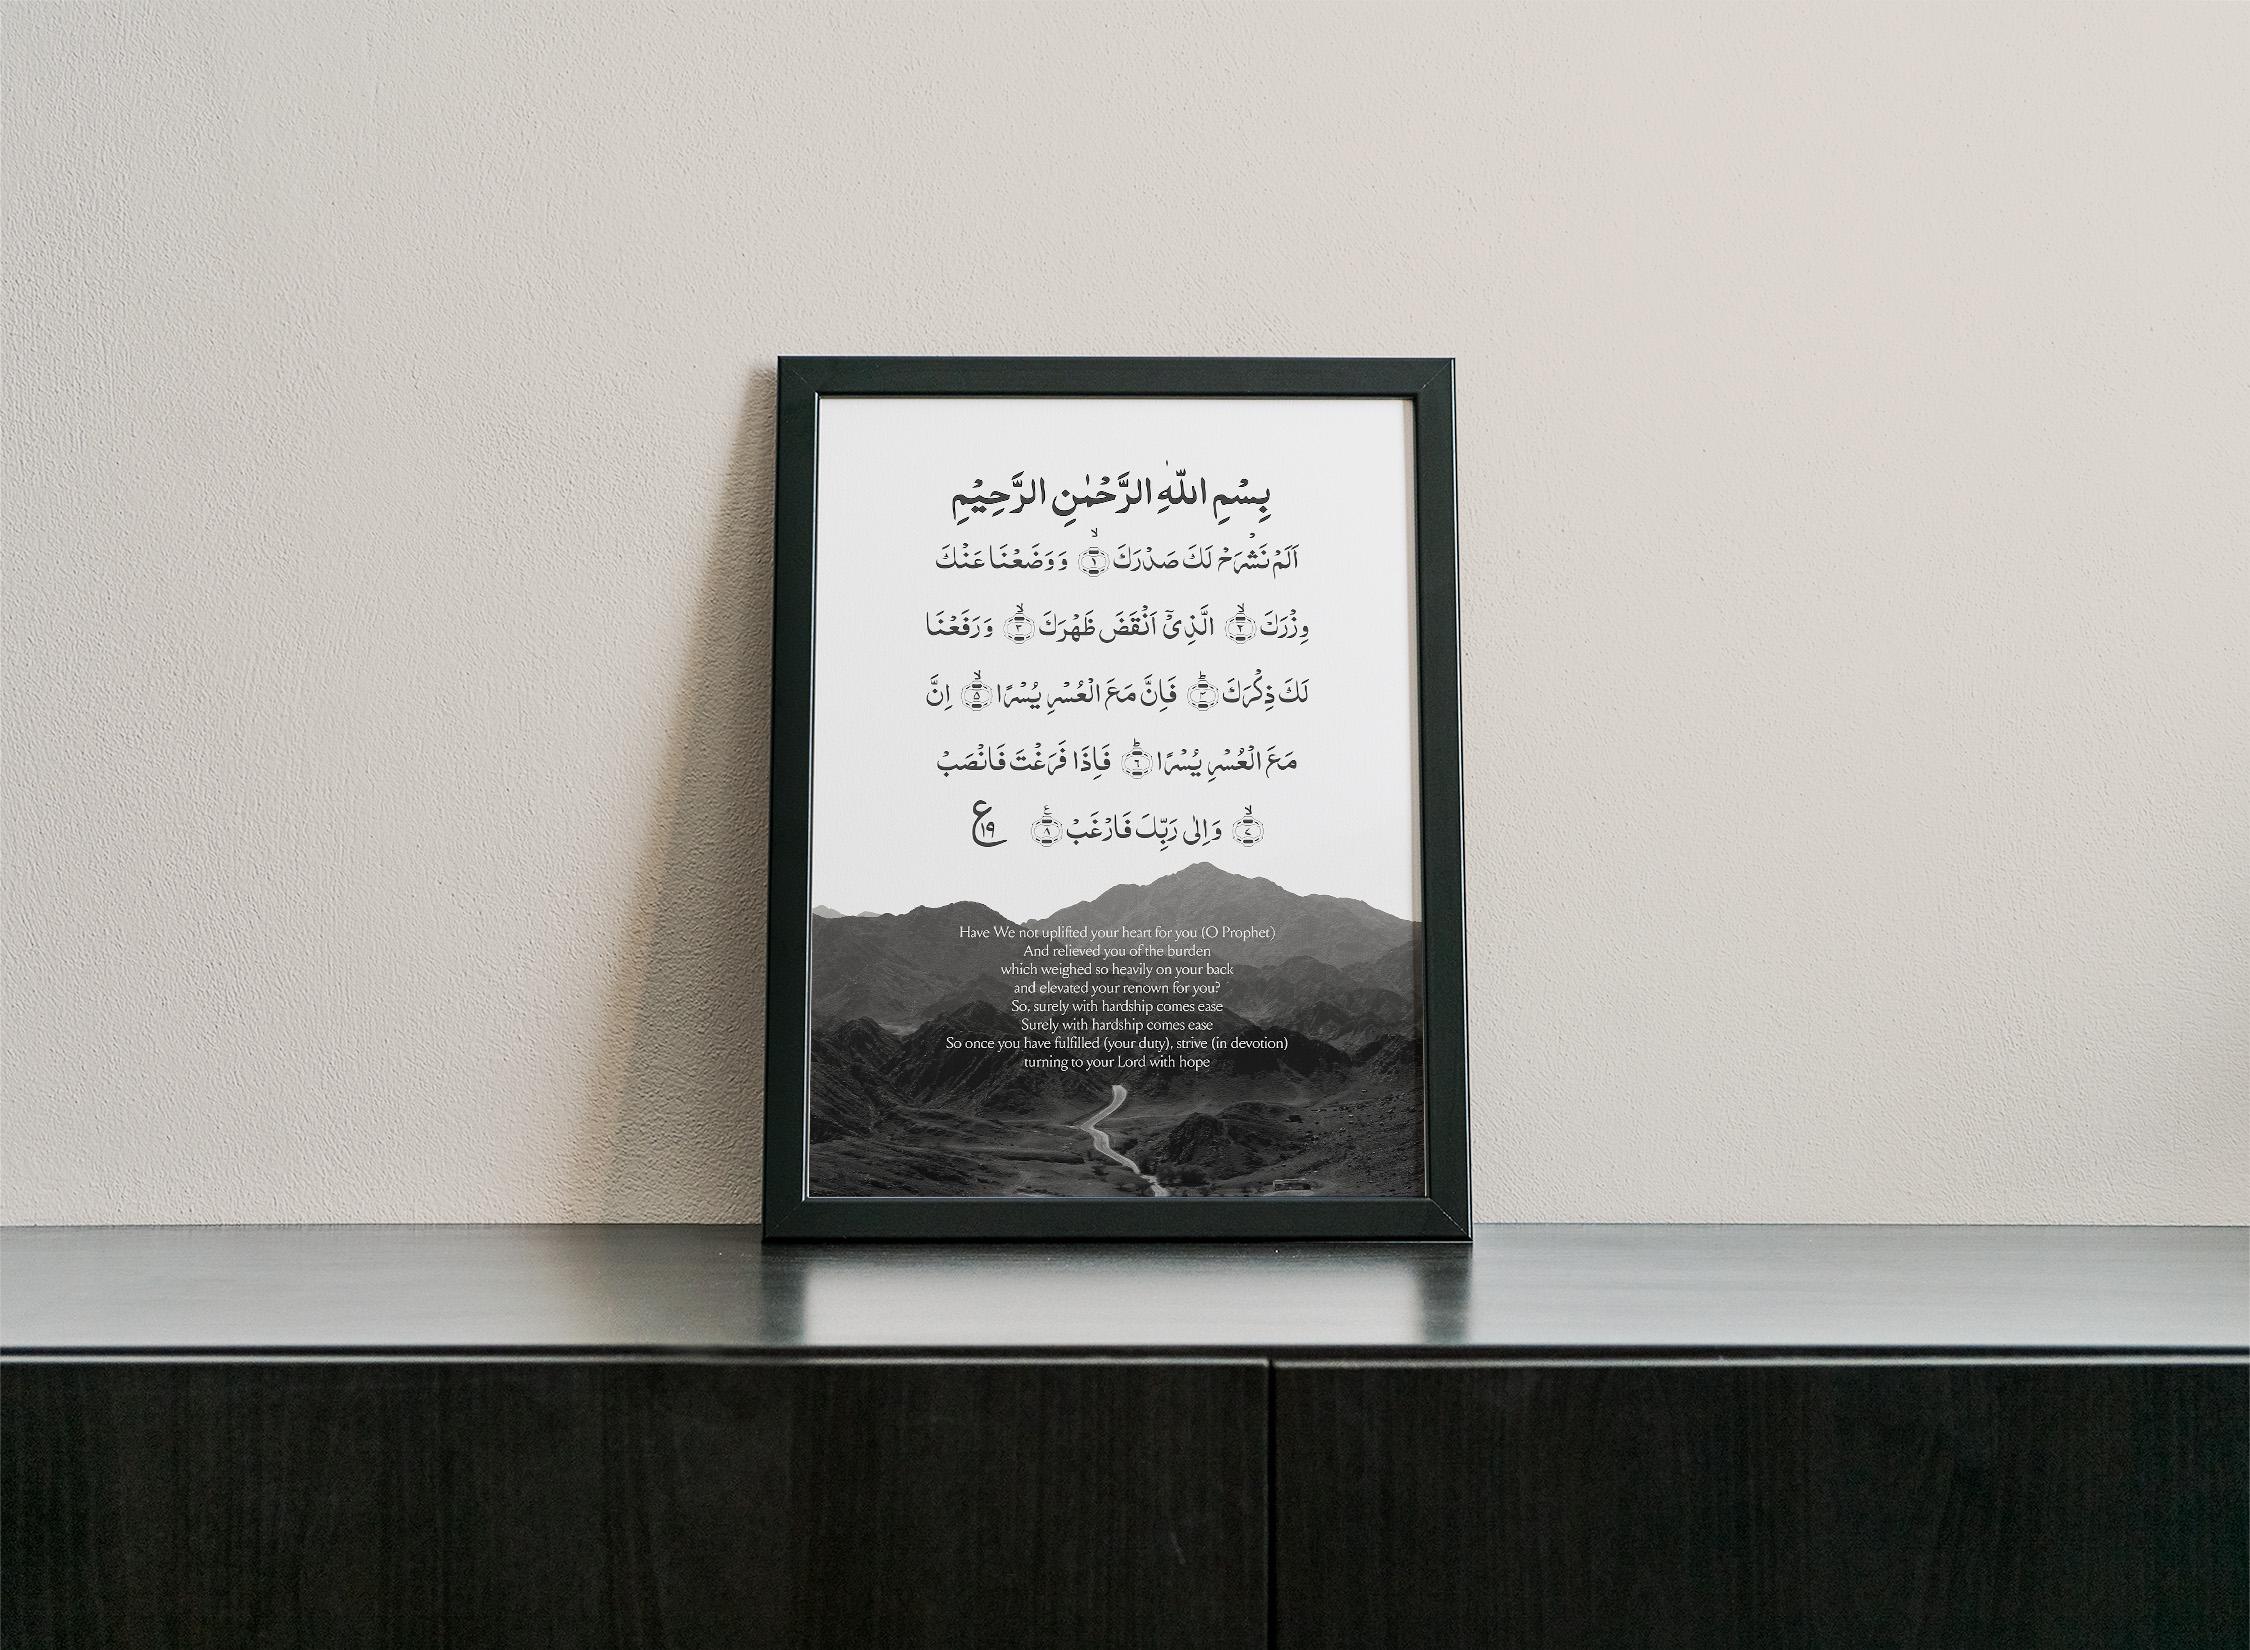 بِسْمِ اللّٰهِ الرَّحْمٰنِ الرَّحِيْمِ
اَلَمْ نَشْرَحْ لَكَ صَدْرَكَ ۙ‏﴿۱﴾ وَ وَضَعْنَا عَنْكَ
وِزْرَكَ ۙ‏﴿۲﴾ الَّذِىْۤ اَنْقَضَ ظَهْرَكَ ۙ‏﴿۳﴾ وَ رَفَعْنَا
لَكَ ذِكْرَكَ ؕ‏﴿۴﴾ فَاِنَّ مَعَ الْعُسْرِ يُسْرًا ۙ‏﴿۵﴾ اِنَّ
مَعَ الْعُسْرِ يُسْرًا ؕ‏﴿۶﴾ فَاِذَا فَرَغْتَ فَانْصَبْ
ۙ‏﴿۷﴾ وَاِلٰى رَبِّكَ فَارْغَبْ‏﴿۸﴾ ع ۱۹
Have We not uplifted your heart for you (O Prophet)
And relieved you of the burden
which weighed so heavily on your back
and elevated your renown for you?
So, surely with hardship comes ease
Surely with hardship comes ease
So once you have fulfilled (your duty), strive (in devotion)
turning to your Lord with hope